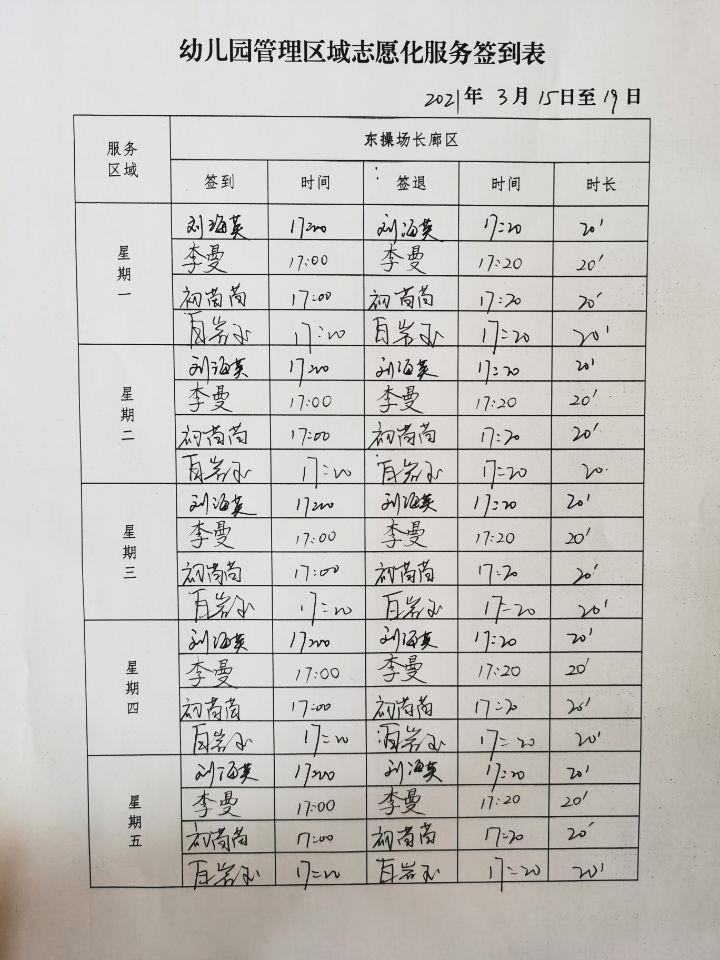 幼儿园管理区域志愿化服务签到表
2021年 3月 15日至 19日
服务区域 东操场长廊区
签到 时间 签退 时间 时长
星期一
刘海英 17:00 刘海英 17:20 20'
李曼 17:00 李曼 17:20 20'
初苗苗 17:00 初苗苗 17:20 20'
岩玉 17:00 岩玉 17:20 20'
星期二
刘海英 17:00 刘海英 17:20 20'
李曼 17:00 李曼 17:20 20'
初苗苗 17:00 初苗苗 17:20 20'
岩玉 17:00 岩玉 17:20 20
星期三
刘海英 17:00 刘海英 17:20 20'
李曼 17:00 李曼 17:20 20'
初苗苗 17:00 初苗苗 17:20 20'
岩玉 17:00 岩玉 17:20 20'
星期四
刘海英 17:00 刘海英 17:20 20'
李曼 17:00 李曼 17:20 20'
初苗苗 17:00 初苗苗 17:20 20'
岩玉 17:00 岩玉 17:20 20'
星期五
刘海英 17:00 刘海英 17:20 20'
李曼 17:00 李曼 17:20 20'
初苗苗 17:00 初苗苗 17:20 20'
岩玉 17:00 岩玉 17:20 20'